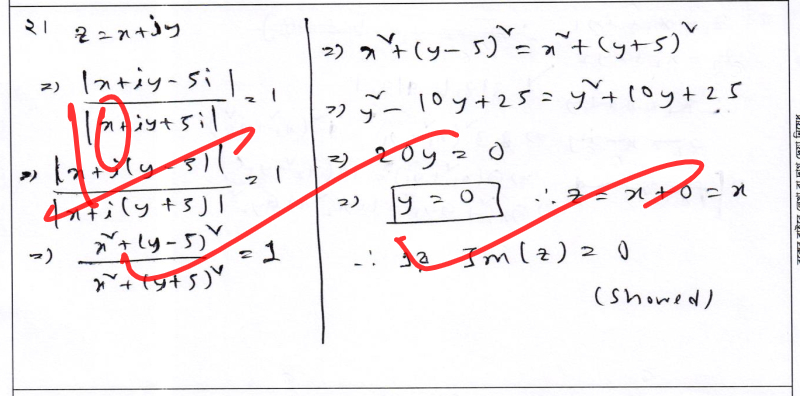 ২। z = x + iy
=> |x + iy - 5i| / |x + iy + 5i| = 1
=> |x + i(y - 5)| / |x + i(y + 5)| = 1
=> x² + (y - 5)² / x² + (y + 5)² = 1
=> x² + (y - 5)² = x² + (y + 5)²
=> y² - 10y + 25 = y² + 10y + 25
=> 20y = 0
=> y = 0 ∴ z = x + 0 = x
∴ Im(z) = 0
(Showed)
10